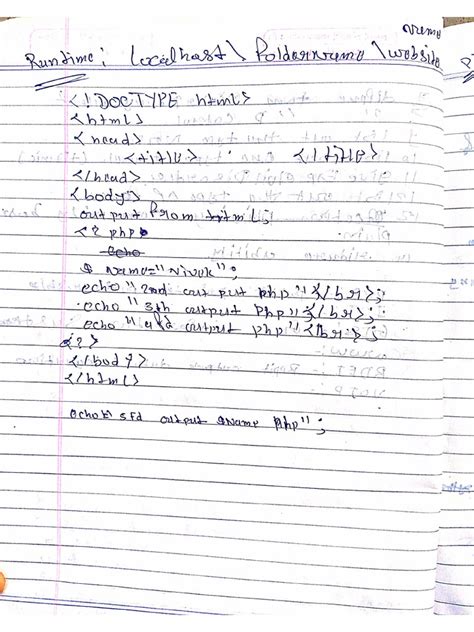 name
Runtime: Localhast\ Foldername \website
<!DOCTYPE html>
<html>
<head>
<title> </title>
</head>
<body>
output from html;
<? php
echo
$ name="vivek";
echo "2nd out put php"</br>;
echo "3th output php"</br>;
echo "4th output php"</br>;
<?>
</body>
</html>
output $name php";